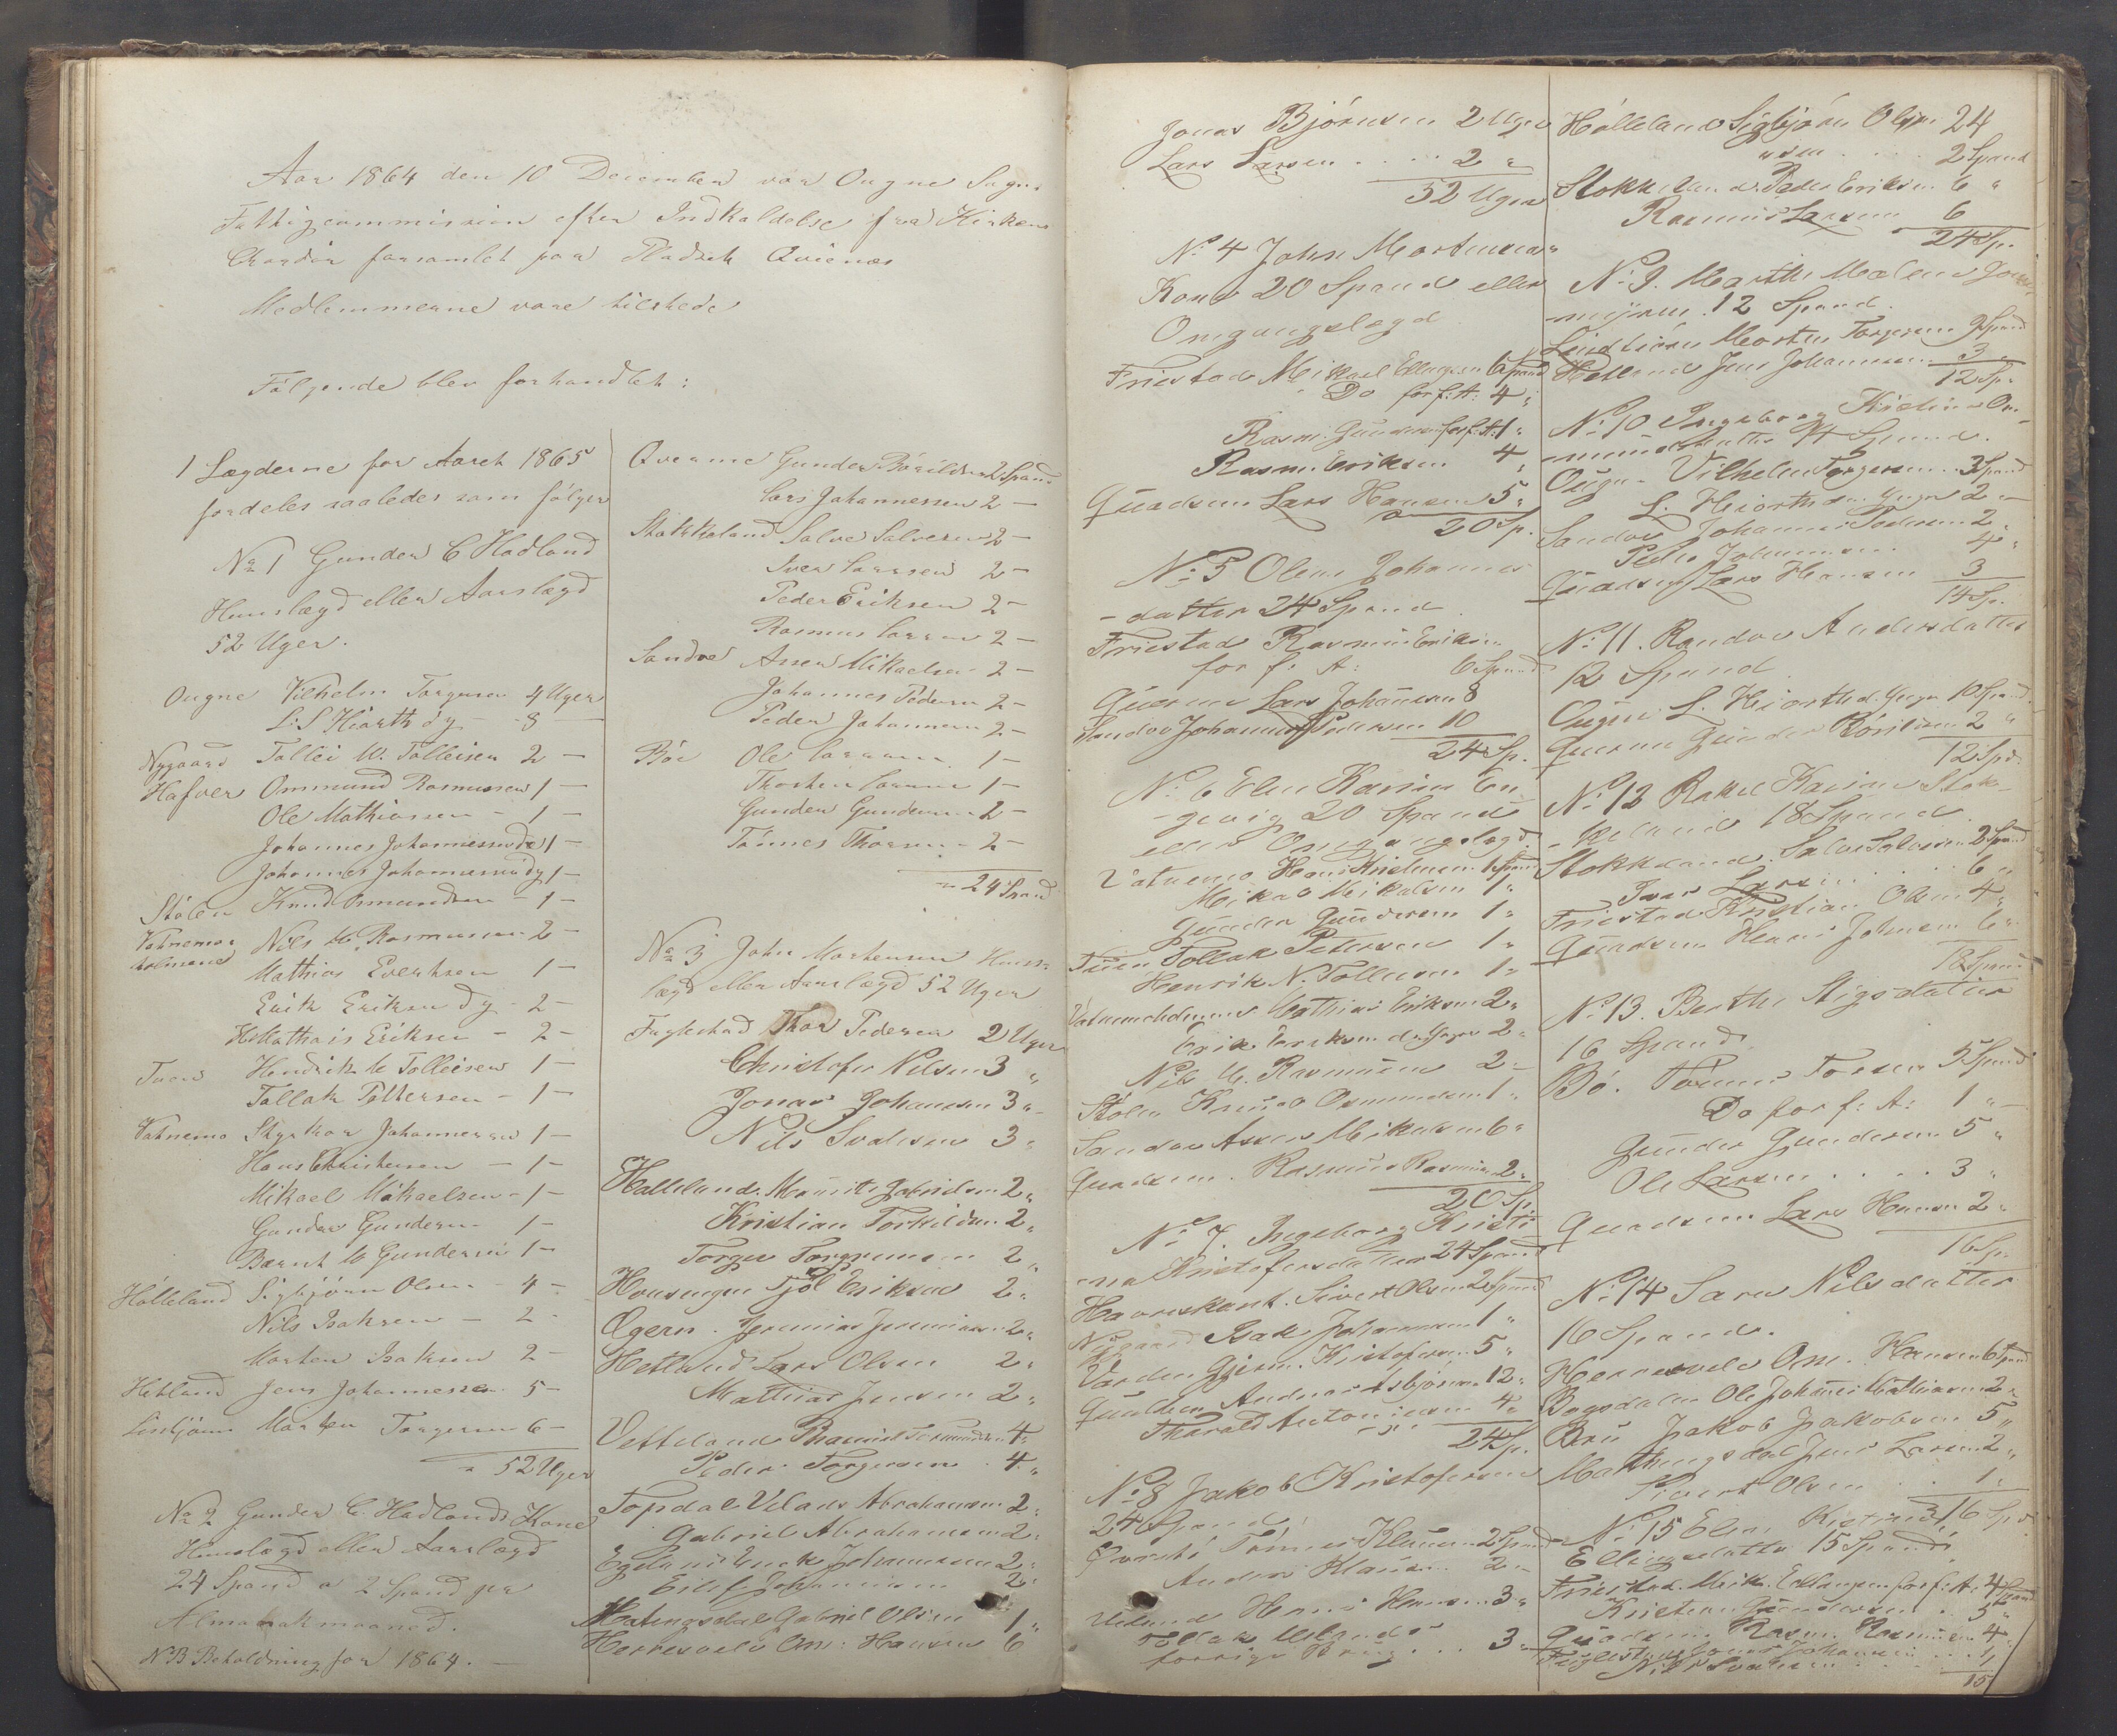 Aar 1864 den 10 Deciember var Ougne Sogns
Fattigcommission efter Indkaldelse fra Kirkens
forsamlet paa Pladsen Qvienæs
Medlemmerne vare tilstede
Følgende blev forhandlet:
1 Lægderne for Aaret 1865
fordeles saaledes som følger
No 1 Gunder C Hadland
Huuslægd eller Aarslægd
52 Uger.
Ougne Vilhelm Torgersen 4 Uger
L. S Hiorth dy - 8 -
Nygaard Tollei W. Tolleisen 2 -
Hafver Ommund Rasmussen 1 -
Ole Mathiassen - 1 -
Johannes Johannessen 1 -
Johannes Johannessen dy 1 -
Stølen Knud Omundsen - 1 -
Vatnemo Nils M. Rasmussen 2 -
holmene Mathias Eveartsen 1 -
Erik Eriksen dy - 2 -
Mathais Eriksen - 2 -
Tuen Hendrik N Tolleisen 1 -
Tollak Pettersen - 1 -
Vatnemo Styrkar Johannessen 1 -
Hans Christensen - 1 -
Mikael Mikaelsen - 1 -
Gunder Gundersen 1 -
Bærnt M Gundersen 1 -
Hølleland Sigbjørn Olsen - 4 -
Nils Isaksen - 2 -
Morten Isaksen 2 -
Hetland Jens Johannessen 5 -
Linbjørn Morten Torgersen 6 -
52 Uger
No 2 Gunder C. Hadlands Kone
Huuslægd eller Aarslægd
24 Spand a 2 Spand per
Almanakmaaned.
NB Beholdning for 1864. -
Qverme Gunder Børildsen 2 Spand
Lars Johannessen 2 -
Stokkeland Salve Salvesen 2 -
Iver Larssen 2 -
Peder Eriksen 2 -
Rasmus Larsen 2 -
Sandve Assen Mikaelsen 2 -
Johannes Pedersen 2 -
Peder Johannesen 2 -
Bøe Ole Larssen 1 -
Thorsten Larssen 1 -
Gunder Gundersen 2 -
Tønnes Thorsen - 2 -
24 Spand
No 3 John Mortensen Huus-
lægd eller Aarslægd 52 Uger
Fuglestad Thor Pedersen 2 Uger
Christofer Nilsen 3 "
Jonas Johansen 3 "
Nils Svalesen 3 "
Hølleland. Maurits Gabrielsen 2 "
Kristian Torkildsen 2 "
Torger Torgersen 2 "
Hvusingen Tjøl Eriksen 2 "
Øgern. Jeremias Jeremiasen 2 "
Hetland Lars Olsen 2 "
Mathias Jensen 2 "
Vetteland Thammes Tormundsen 4 "
Peder Torgersen 4 "
Topdal Vilads Abrahamsen 2 "
Gabriel Abrahamsen 2 "
Egeland Enok Johannesen 2 "
Eilef Johannesen 2 "
Matingsdal Gabriel Olsen 1 "
Herresvele Om: Hansen 6
Jonas Bjørnsen 2 Uger
Lars Larsen . . . . 2 "
52 Uger
No 4 John Mortensens
Kone 20 Spand eller
Omgangslægd
Friestad Mikael Ellingsen 6 Spand
Do for f: A: 4 "
Rasm. Gundersen for f: A: 1 "
Rasm. Eriksen 4 "
Quadsem Lars Hansen 5 "
20 Sp.
No 5 Olene Johannes
-datter 24 Spand
Friestad Rasmus Eriksen
for f: A: 6 Spand
Querme Lars Johannesen 8
Sandve Johannes Pedersen 10
24 Sp.
No 6 Elen Karine En
-gevig 20 Spand
eller Omgangslægd.
Vatnemo Hans Kristensen 1 Spand
Mikal Mikalsen 1 "
Gunder Gundersen 1 "
Tuen Tollak Petersen 1 "
Henrik N. Tolleisen 1 "
Vatnemoholmene Mathias Eriksen 2 "
Erik Eriksen d. Yngre 2 "
Nils M. Rasmussen 2 "
Stølen Knud Ommundsen 1 "
Sandve Assen Mikalsen 6 "
Quadsem. Rasmus Rasmussen 2 "
20 Sp.
No 7. Ingeborg Kristi
-na Kristofersdatter 24 Spand
Haareskart. Sivert Olsen 2 Spand
Nygaard Isak Johannesen 1 "
Varden Gjerm. Kristofersen 5 "
Quullen Andreas Asbjørnsen 12 "
Tharald Antonsen 4 "
24 Sp.
No 8 Jakob Kristofersen
24 Spand
Tønnes Klausen 2 Spand
Andreas Klausen 2 "
Ueland Hans Hansen 3 "
Tollak Uelands
forrige Brug . . . 3 "
Hølleland Sigbjørn Olsen 24
2 Spand
Stokkeland Peder Eriksen 6 "
Rasmus Larsen 6
24 Sp.
No 9. Marthe Malene
12 Spand.
Lindbiørn Morten Torgersen 9 Spand
Hetland Jens Johannesen 3 "
12 Sp.
No 10 Ingeborg Kristine Om-
-mundsdatter 14 Spand.
Ougn - Vilhelm Torgersen 3 Spand
L. Hiorth den Yngre 2 "
Sandve Johannes Pedersen 2 "
Peder Johannesen 4 "
Quadsem Lars Hansen 3
14 Sp.
No 11. Randve Andersdatter
12 Spand
Ougne L. Hiorth d. Yngre 10 Spand
Querme Gunder Børildsen 2 "
12 Spd.
No 12 Rakel Karine Stok-
-keland 18 Spand.
Stokkeland. Salve Salvesen 2 Spand
Ivar Larsen . . . . 6 "
Friestad Kristian Olsen 4 "
Quadsem Hans Johnsen 6 "
18 Spand
No 13. Berthe Stigsdatter
16 Spand.
Bø. Tønnes Torsen 5 Spand
Do for f: A: 1 "
Gunder Gundersen 5 "
Ole Larsen . . . . 3 "
Quadsem Lars Hansen 2 "
16 Sp.
No 14 Sara Nilsdatter
16 Spand.
Herresvele Om. Hansen 6 Spand
Bogsdalen Ole Johannes Mathiasen 2 "
Bru Jakob Jakobsen 5 "
Mathingsdal Jens Larsen 2 "
Sivert Olsen . . 1 "
16 Spd.
No 15 Elen
Ellingsdatter 15 Spand
Friestad. Mik. Ellingsen for f: A: 4 Spand
Kristen Gundersen . . 5 "
Quadsem. Rasm. Rasmussen 4 "
Fuglestad Jonas Johansen . . . 1 "
Nils Svalesen . . . . 1
15